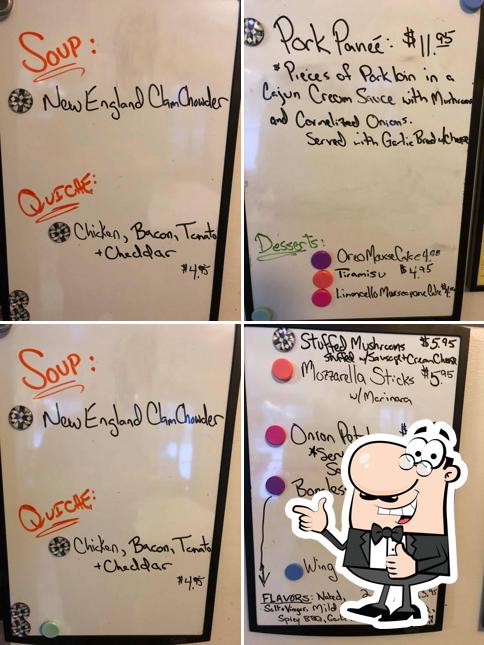 SOUP:
New England ClamChowder
QUICHE:
Chicken, Bacon, Tomato
+ Cheddar
$4.95
Pork Paneé: $11.95
*Pieces of Pork loin in a
Cajun Cream Sauce with Mushroom
and Carmelized Onions.
Served with Garlic Bread w/Cheese
Desserts:
Oreo Mousse Cake 4.95
Tiramisu $4.95
Limoncello Marscapone Cake
SOUP:
New England ClamChowder
QUICHE:
Chicken, Bacon, Tomato
+ Cheddar
$4.95
Stuffed Mushrooms $5.95
Stuffed w/Sausage+Cream Cheese
Mozzarella Sticks $5.95
w/Marinara
Onion
*Serv
Wing
FLAVORS: Naked,
Salt+Vinegar, Mild
Spicy BBQ,